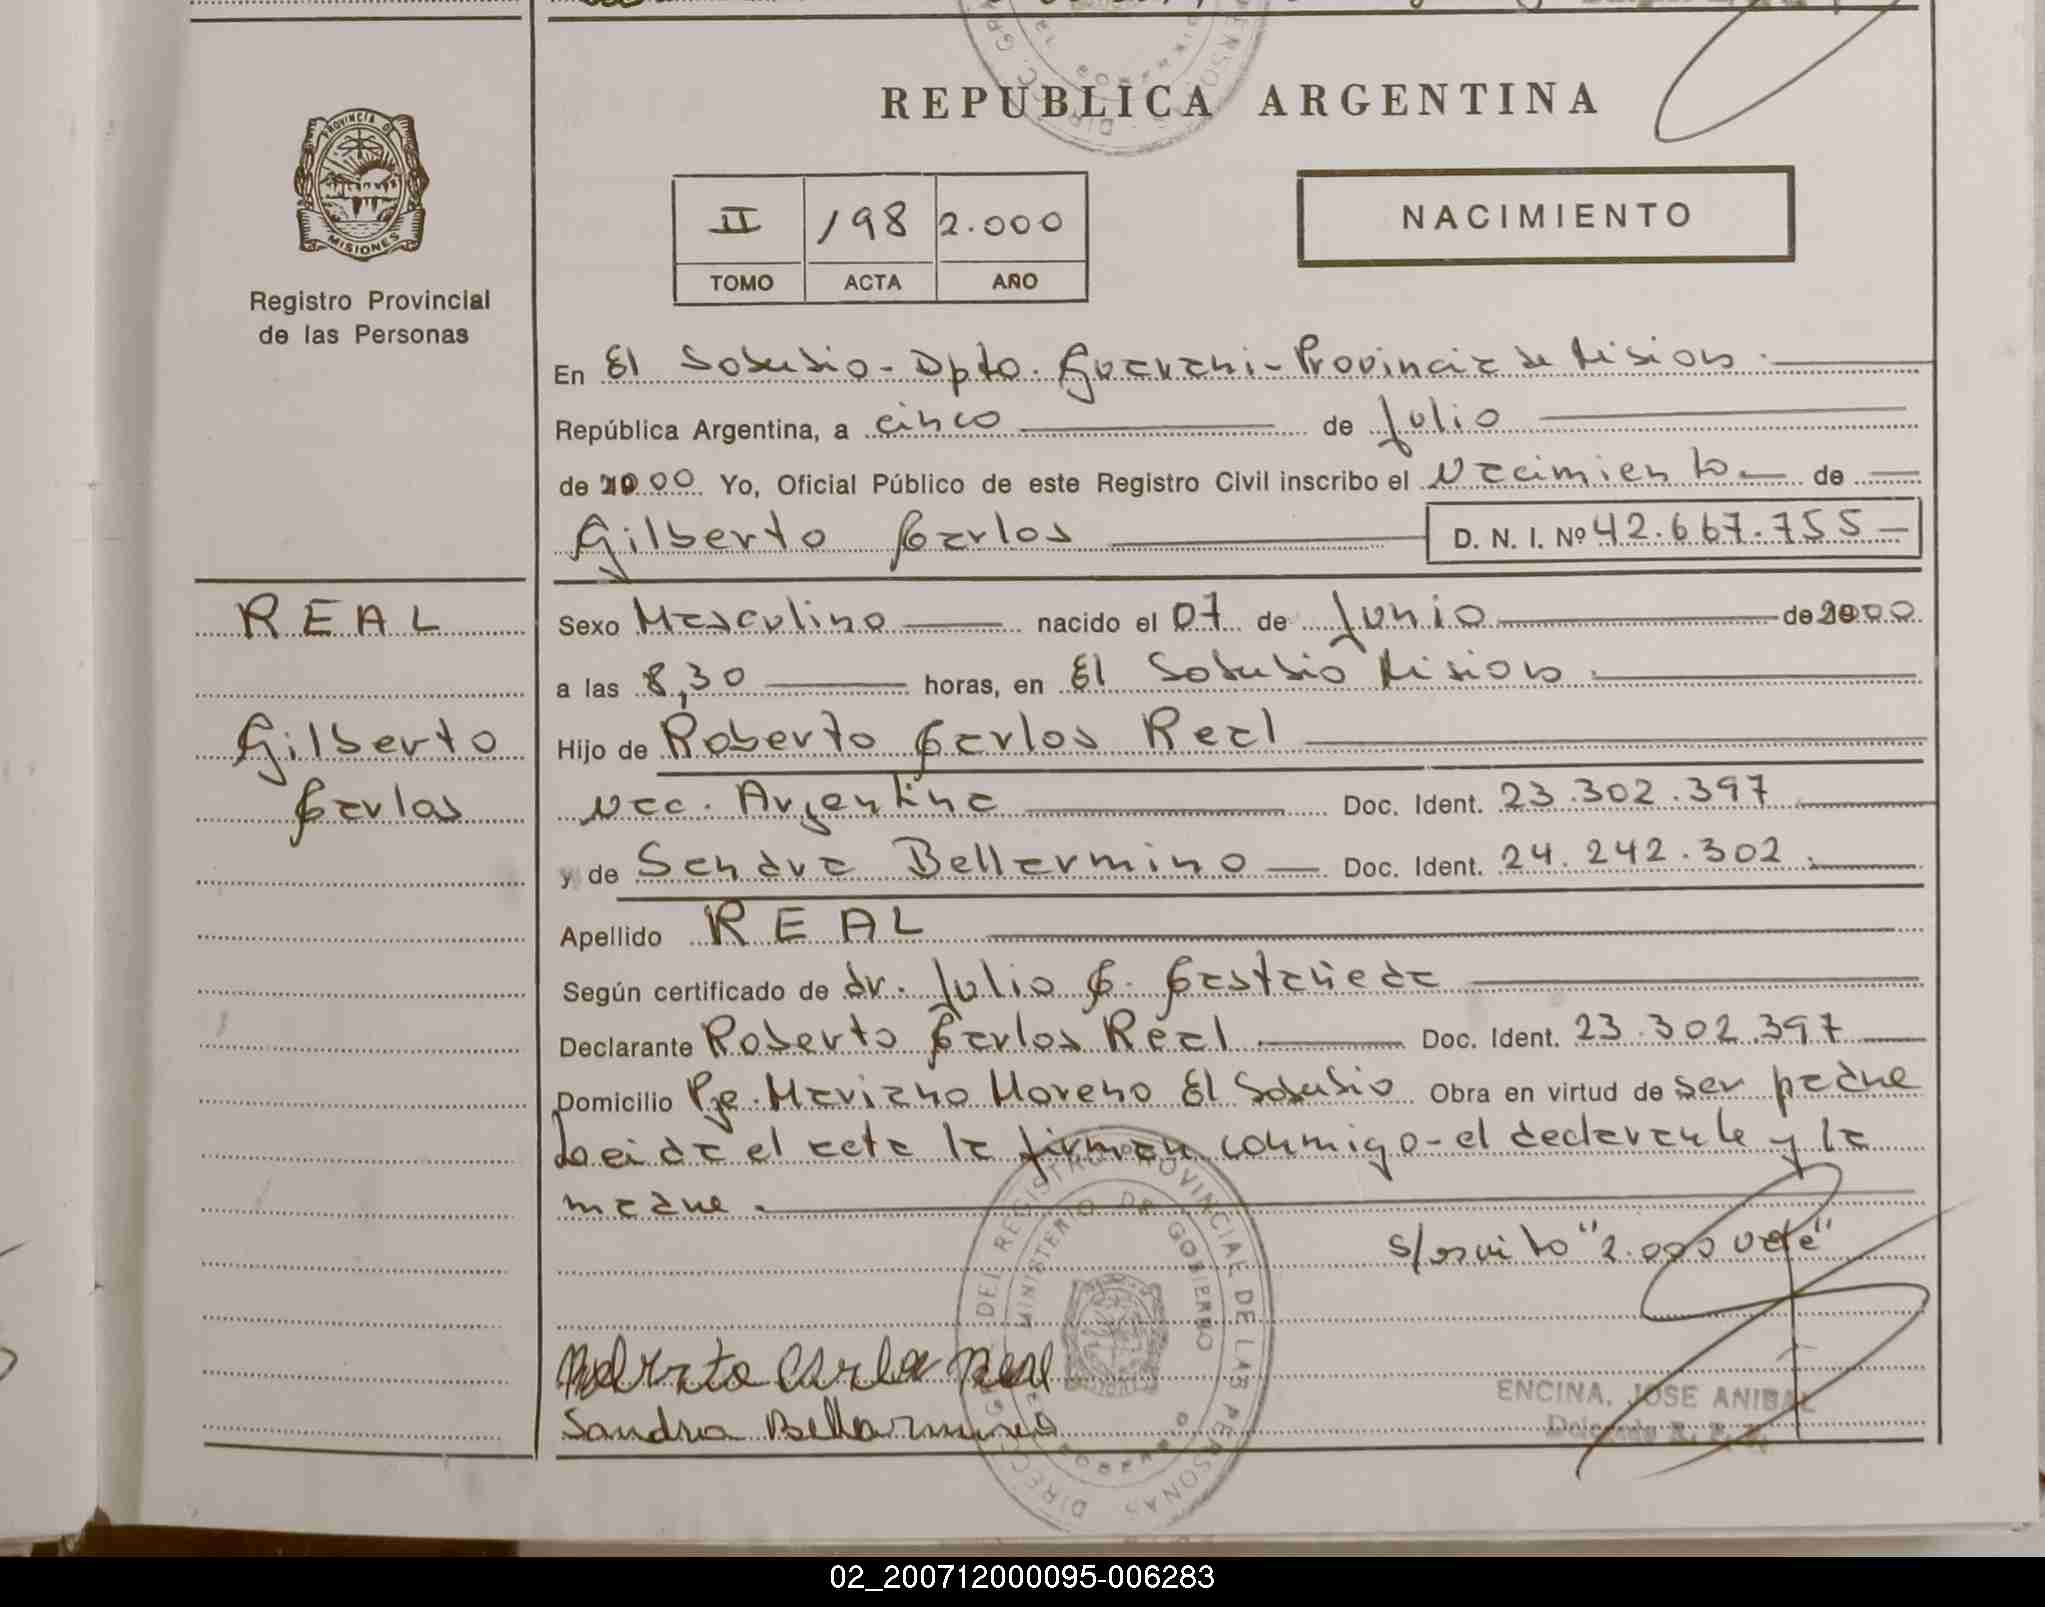 REPUBLICA ARGENTINA
PROVINCIA DE
MISIONES
Registro Provincial
de las Personas
II 198 2.000
TOMO ACTA AÑO
NACIMIENTO
En El Soberbio - Dpto. Guarani - Provincia de Misiones.
República Argentina, a cinco de Julio
de 2000 Yo, Oficial Público de este Registro Civil inscribo el Nacimiento de
Gilberto Carlos D. N. I. Nº 42.667.755
REAL
Gilberto
Carlos
Sexo Masculino nacido el 07 de Junio de 2000
a las 8,30 horas, en El Soberbio Misiones.
Hijo de Roberto Carlos Real
Nac. Argentina Doc. Ident. 23.302.397
y de Sandra Bellarmino Doc. Ident. 24.242.302.
Apellido REAL
Según certificado de dr. Julio C. Castañeda
Declarante Roberto Carlos Real Doc. Ident. 23.302.397
Domicilio Pje. Mariano Moreno El Soberbio Obra en virtud de ser padre
Leida el acta la firman conmigo - el declarante y la
madre.
s/escrito "2.000 vale"
Roberto Carlos Real
Sandra Bellarmino
DEL REGISTRO PROVINCIAL DE LAS PERSONAS
MINISTERIO DE GOBIERNO
ENCINA, JOSE ANIBAL
Delegado R. P. P.
02_200712000095-006283